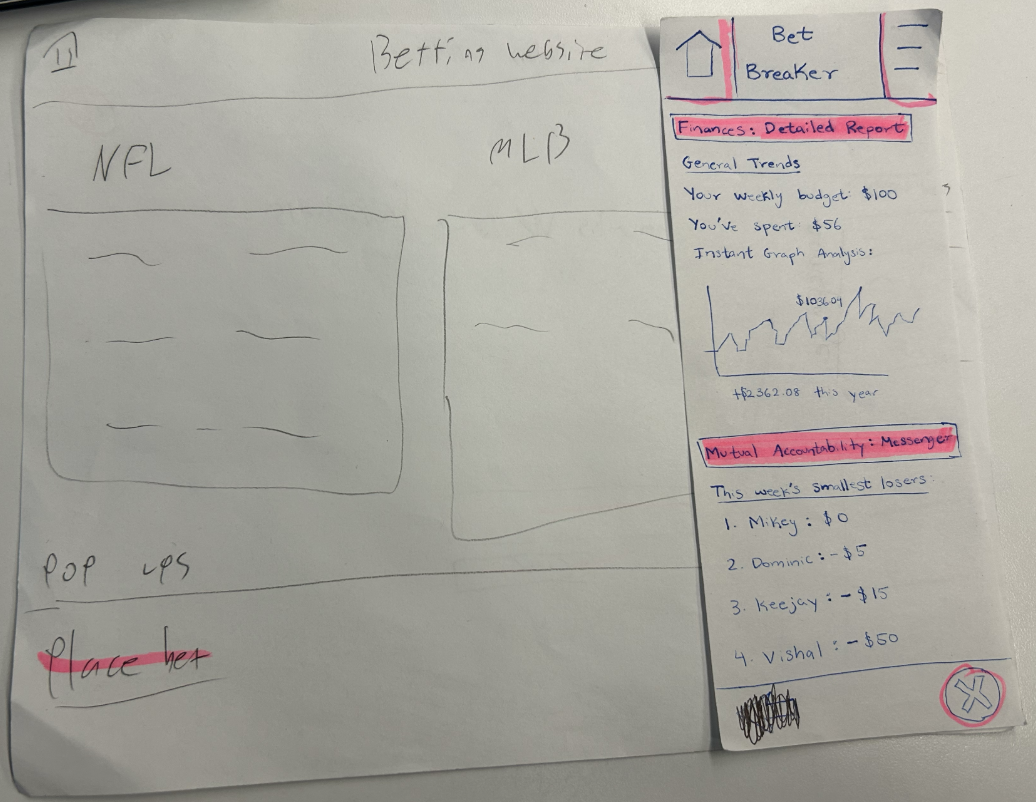 Betting website
NFL
MLB
Pop ups
Place bet
Bet
Breaker
Finances: Detailed Report
General Trends
Your weekly budget: $100
You've spent: $56
Instant Graph Analysis:
$1036.04
+$2362.08 this year
Mutual Accountability: Messenger
This week's smallest losers:
1. Mikey: $0
2. Dominic: -$5
3. Keejay: -$15
4. Vishal: -$50
X